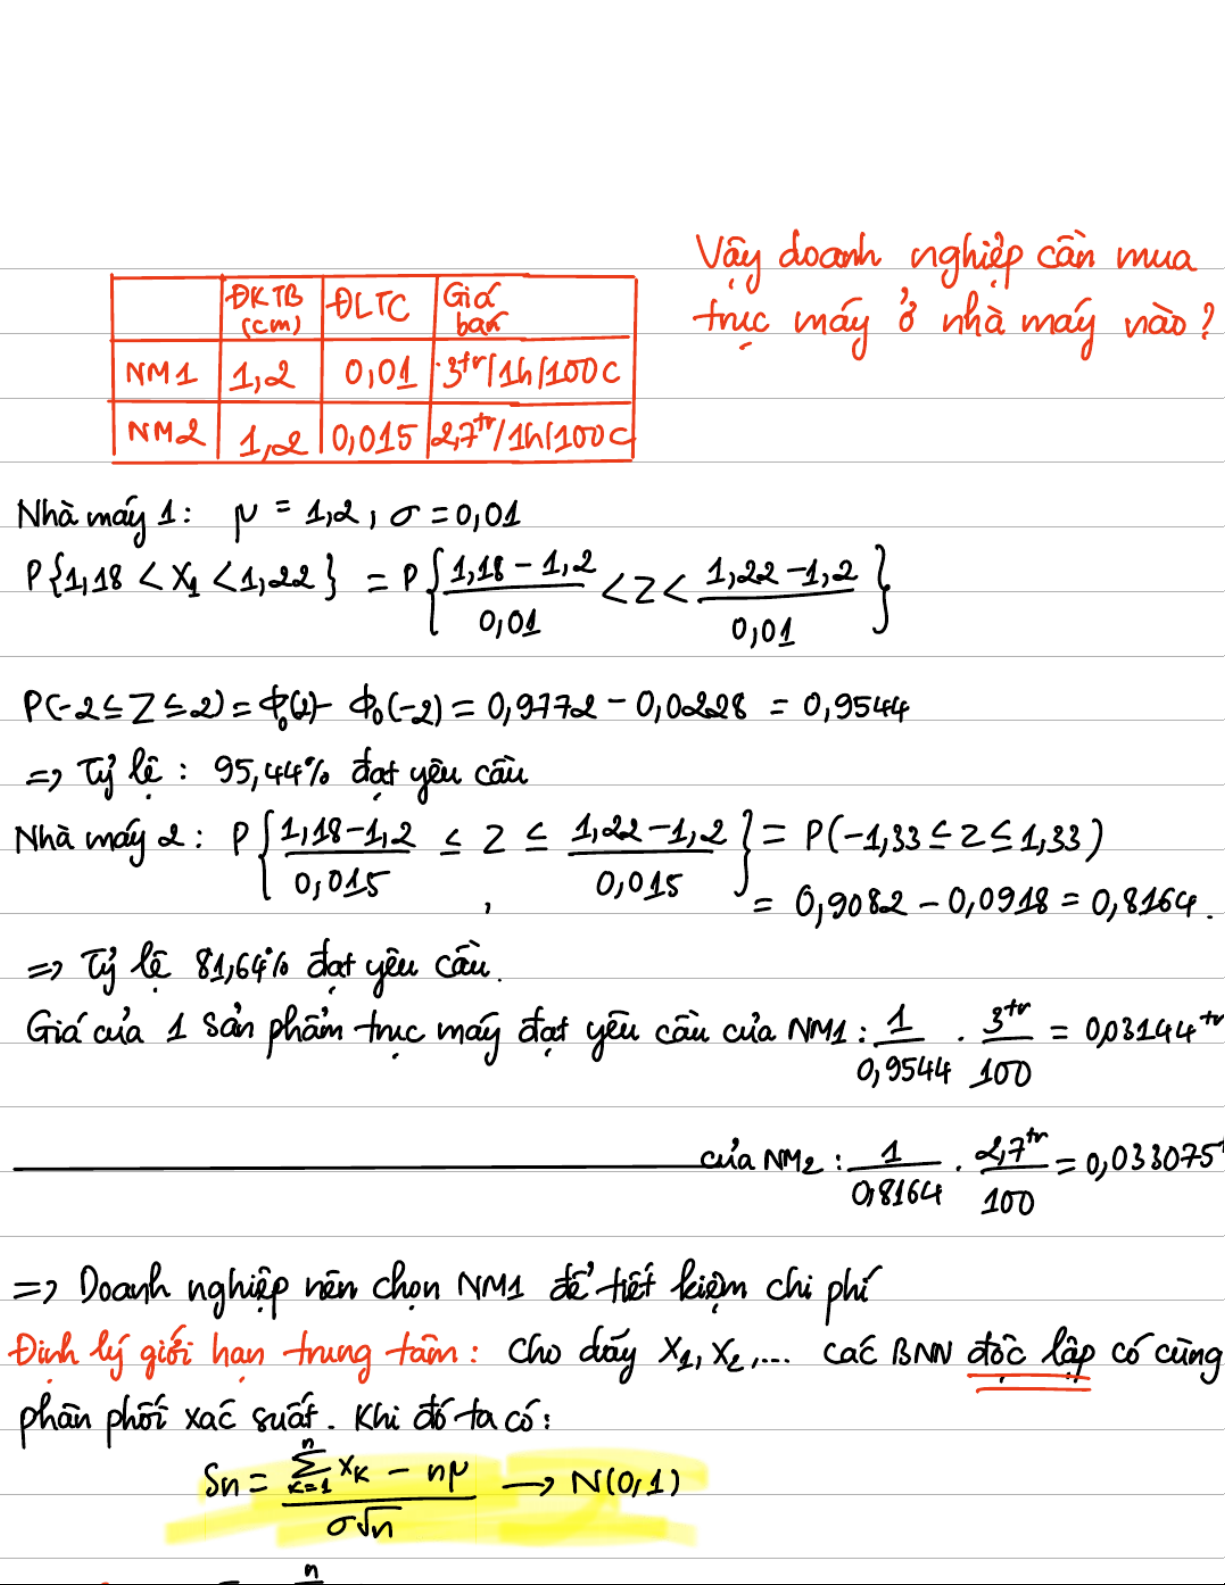 Vậy doanh nghiệp cần mua
trục máy ở nhà máy nào?
ĐKTB (cm) ĐLTC Giá bán
NM1 1,2 0,01 3tr/1h/100C
NM2 1,2 0,015 2,7tr/1h/100C
Nhà máy 1: μ = 1,2, σ = 0,01
P{1,18 < X₁ < 1,22} = P{(1,18 - 1,2)/0,01 < Z < (1,22 - 1,2)/0,01}
P(-2 ≤ Z ≤ 2) = Φ₀(2) - Φ₀(-2) = 0,9772 - 0,0228 = 0,9544
=> Tỷ lệ : 95,44% đạt yêu cầu
Nhà máy 2 : P{(1,18 - 1,2)/0,015 ≤ Z ≤ (1,22 - 1,2)/0,015} = P(-1,33 ≤ Z ≤ 1,33)
= 0,9082 - 0,0918 = 0,8164.
=> Tỷ lệ 81,64% đạt yêu cầu.
Giá của 1 sản phẩm trục máy đạt yêu cầu của NM1 : 1/0,9544 . 3tr/100 = 0,03144tr
của NM2 : 1/0,8164 . 2,7tr/100 = 0,033075
=> Doanh nghiệp nên chọn NM1 để tiết kiệm chi phí
Định lý giới hạn trung tâm : Cho dãy X₁, X₂,... các BNN độc lập có cùng
phân phối xác suất. Khi đó ta có :
Sn = (∑ₖ₌₁ⁿ Xₖ - nμ)/(σ√n) → N(0,1)